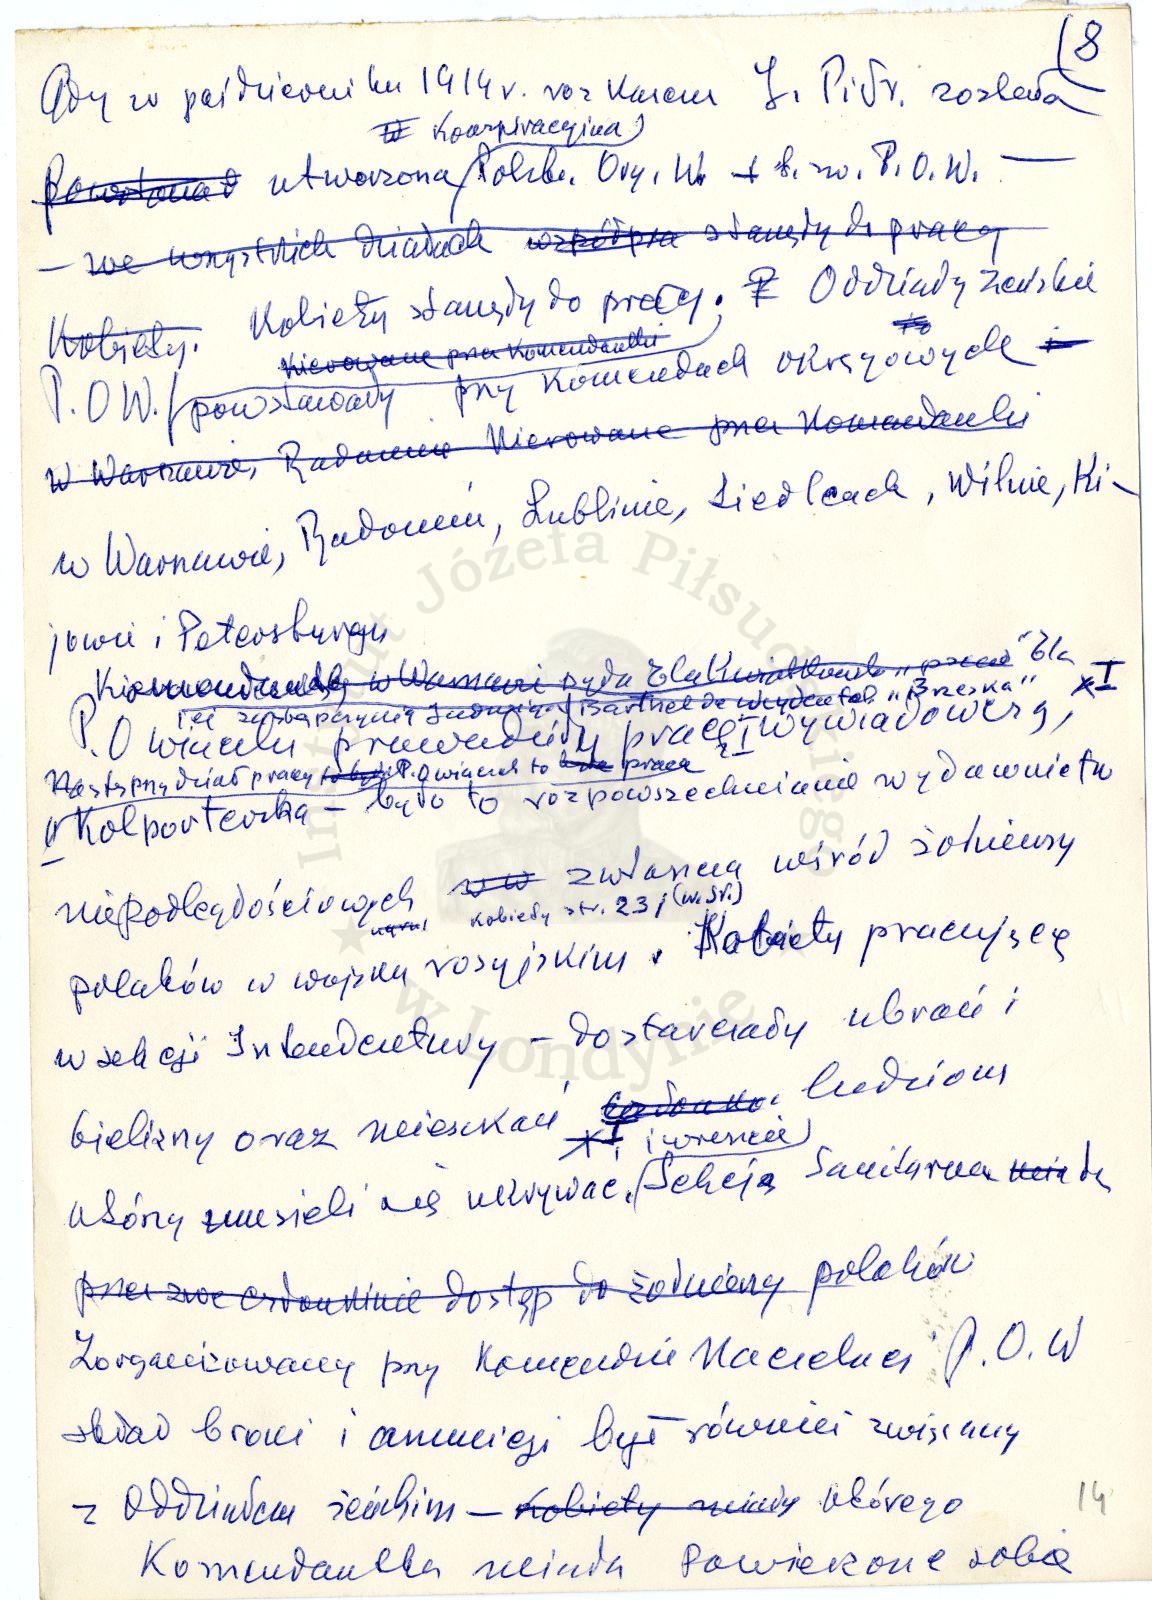 8
Gdy w październiku 1914 r. rozkazem J. Piłs. została
w konspiracyjna
powołana utworzona Polska. Org. W. t. zw. P.O.W. —
— we wszystkich działach współpra stanęły do pracy
Kobiety. Kobiety stanęły do pracy. Oddziały żeńskie
Kierowane przez Komendantki
P.O.W. powstawały przy Komendach okręgowych i
w Warszawie, Radomiu kierowane przez Komendantki
w Warszawie, Radomiu, Lublinie, Siedlcach, Wilnie, Ki-
jowie i Petersburgu
Komendantką w Warszawie była Ela "Ela
jej zastępczynią Jadwiga Barthel de Weydenthal "Brzeska" x I
P.O wiaczki prowadziły pracę I wywiadowczą,
Następny dział pracy P.Owiaczek to praca
II Kolporterska – było to rozpowszechnianie wydawnictw
niepodległościowych w w zwłaszcza wśród żołnierzy
Kobiety str. 23 j (w. Śr.)
polaków w wojsku rosyjskim. Kobiety pracujące
w sekcji Intendentury – dostarczały ubrań i
bielizny oraz mieszkań ludziom
x I i wreszcie
którzy musieli się ukrywać. Sekcja Sanitarna miała
przez swe członkinie dostęp do żołnierzy polaków
Zorganizowany przy Komendzie Naczelnej P.O.W
skład broni i amunicji był również związany
z Oddziałem żeńskim – Kobiety miały którego
14
Komendantka miała powierzone sobie